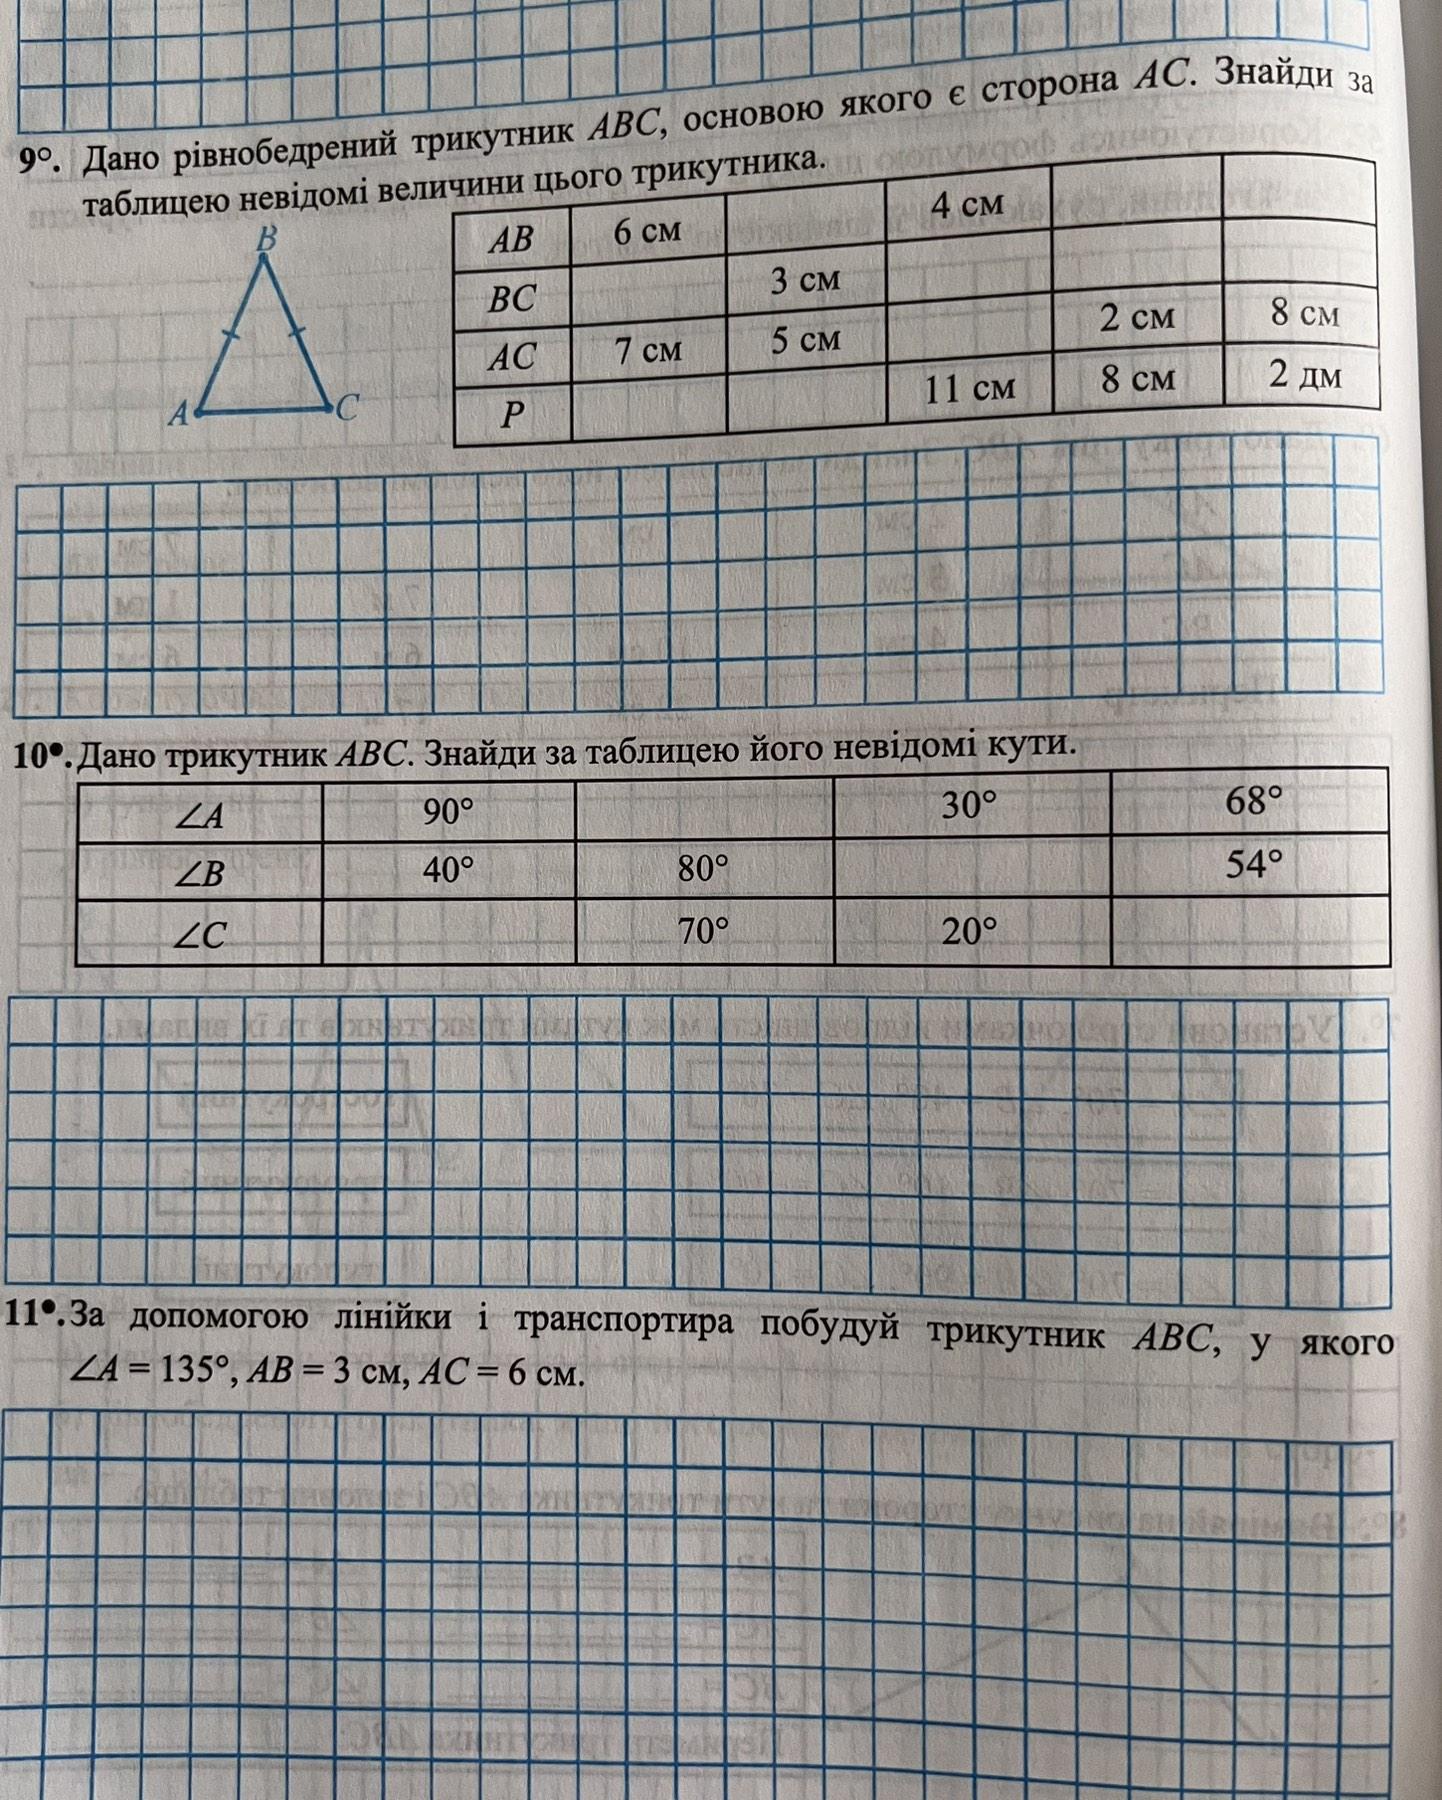 9°. Дано рівнобедрений трикутник ABC, основою якого є сторона AC. Знайди за
таблицею невідомі величини цього трикутника.
B
A
C
AB 6 см 4 см
BC 3 см
AC 7 см 5 см 2 см 8 см
P 11 см 8 см 2 дм
10•. Дано трикутник ABC. Знайди за таблицею його невідомі кути.
∠A 90° 30° 68°
∠B 40° 80° 54°
∠C 70° 20°
11•. За допомогою лінійки і транспортира побудуй трикутник ABC, у якого
∠A = 135°, AB = 3 см, AC = 6 см.